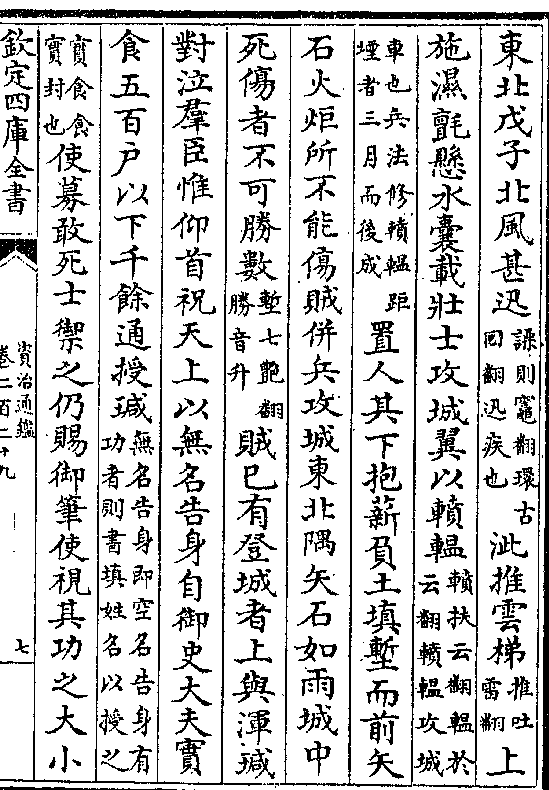 東北戊子北風甚迅譟則竈翻環古回翻迅疾也泚推雲梯推吐雷翻上
施濕氊懸水囊載壯士攻城翼以轒轀轒扶云翻轀於云翻轒轀攻城
車也兵法修轒轀距堙者三月而後成置人其下抱薪負土填塹而前矢
石火炬所不能傷賊併兵攻城東北隅矢石如雨城中
死傷者不可勝數塹七艷翻勝音升賊已有登城者上與渾瑊
對泣羣臣惟仰首祝天上以無名告身自御史大夫實
食五百户以下千餘通授瑊無名告身即空名告身有功者則書填姓名以授之
實食食實封也使募敢死士禦之仍賜御筆使視其功之大小
欽定四庫全書
資治通鑑
卷二百二十九
七